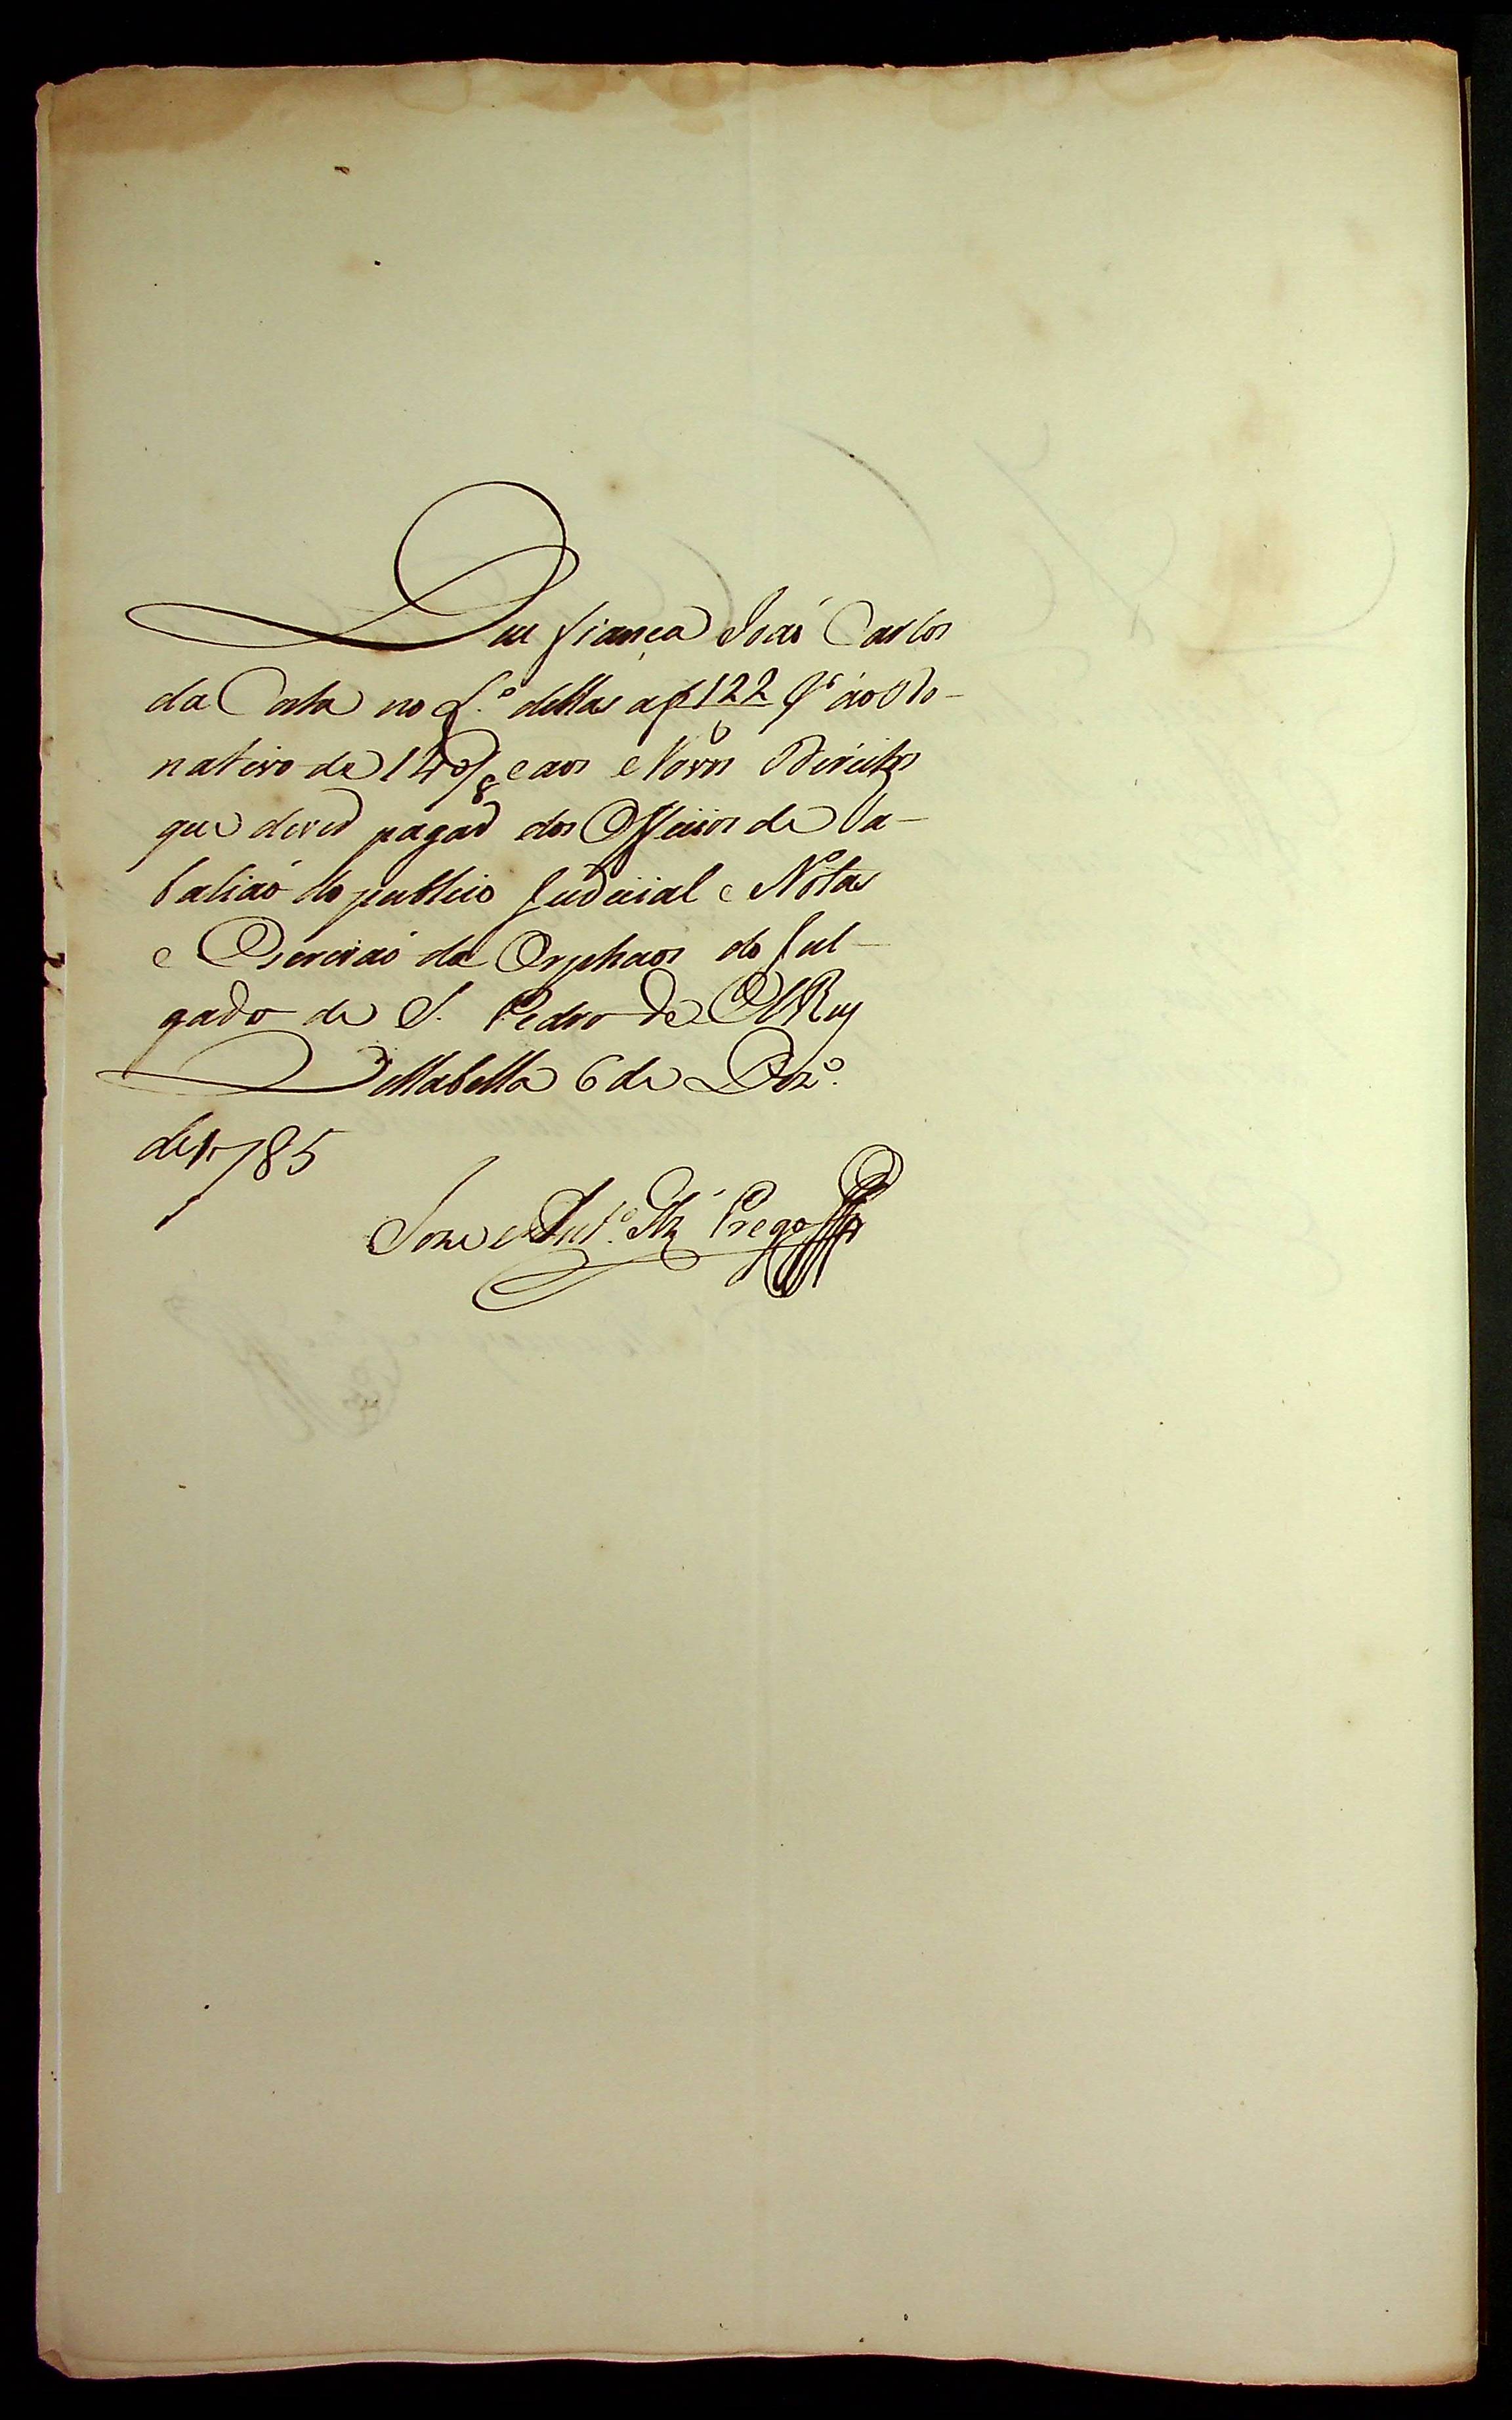 Deu fiança João Carlos
da Costa no L.º dellas a f 122 qº ao Do-
nativo de 140/8 e aos Novos Direitos
que dever pagar dos Officios de Ta-
baliaõ do publico Judicial e Notas
e Escrivaõ de Orphaos do Jul-
gado de S. Pedro de El Rey
Villabella 6 de Dezº.
de 1785
Joze Antº. Glz' Prego